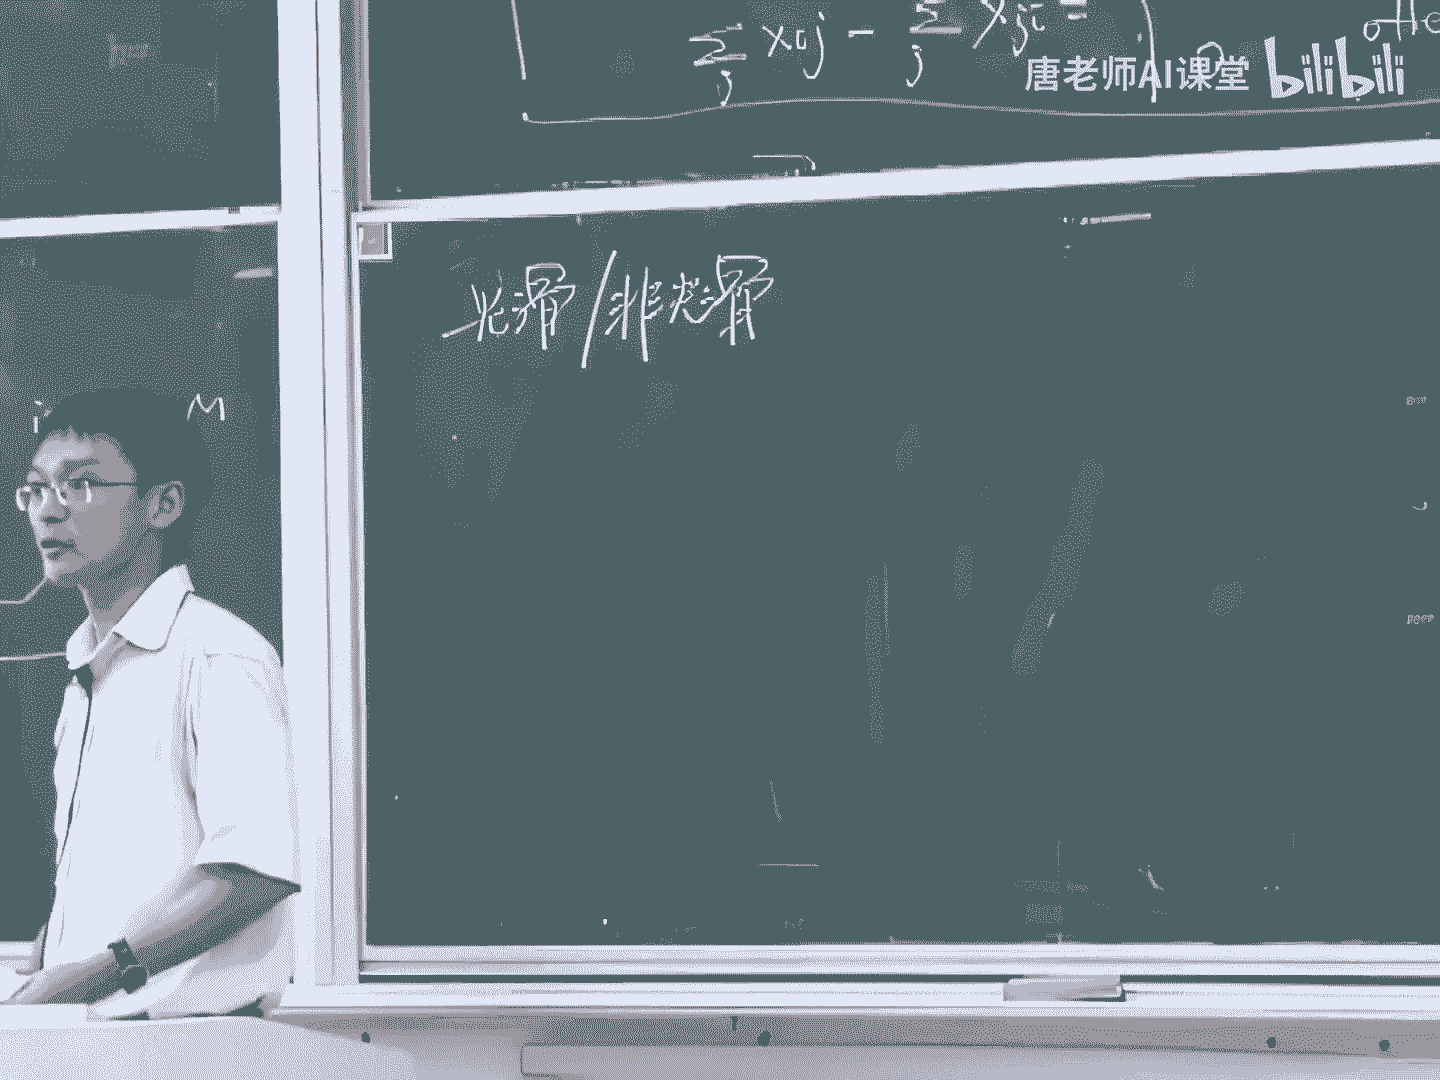 ∑_j x_ij − ∑_j x_ji =
唐老师AI课堂 bilibili
光滑/非光滑
M